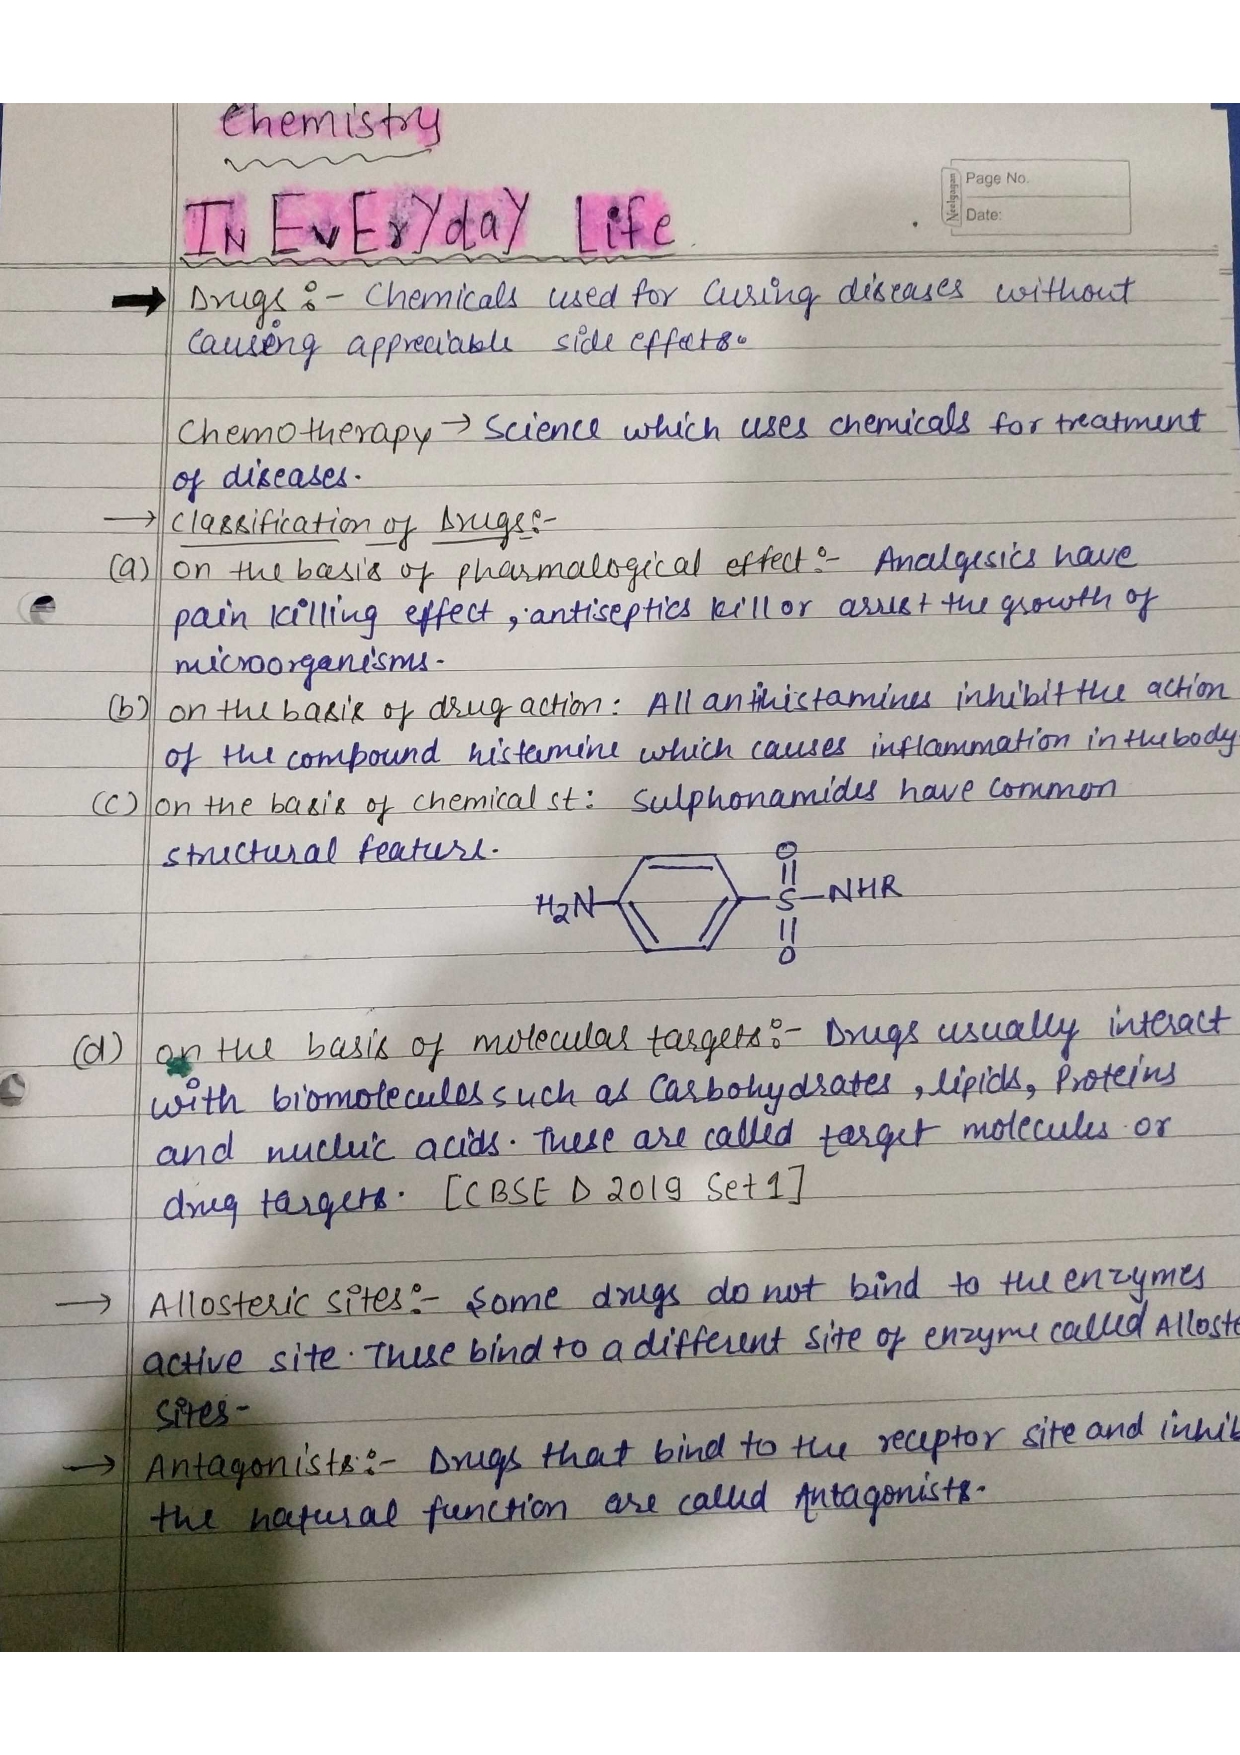 Chemistry
IN EvErYdaY Life
Page No.
Neelgagan
Date:
Drugs :- Chemicals used for Curing diseases without
Causing appreciable side effects.
Chemotherapy → Science which uses chemicals for treatment
of diseases.
→ Classification of Drugs:-
(a) on the basis of pharmalogical effect :- Analgesics have
pain killing effect, antiseptics kill or arrest the growth of
microorganisms.
(b) on the basis of drug action: All antihistamines inhibit the action
of the compound histamine which causes inflammation in the body
(c) on the basis of chemical st: Sulphonamides have common
structural feature.
O
H₂N S NHR
O
(d) on the basis of molecular targets :- Drugs usually interact
with biomolecules such as Carbohydrates, lipids, Proteins
and nucleic acids. These are called target molecules or
drug targets. [CBSE D 2019 Set 1]
→ Allosteric sites :- Some drugs do not bind to the enzymes
active site. These bind to a different site of enzyme called Alloste
sites-
→ Antagonists :- Drugs that bind to the receptor site and inhib
the natural function are called Antagonists.